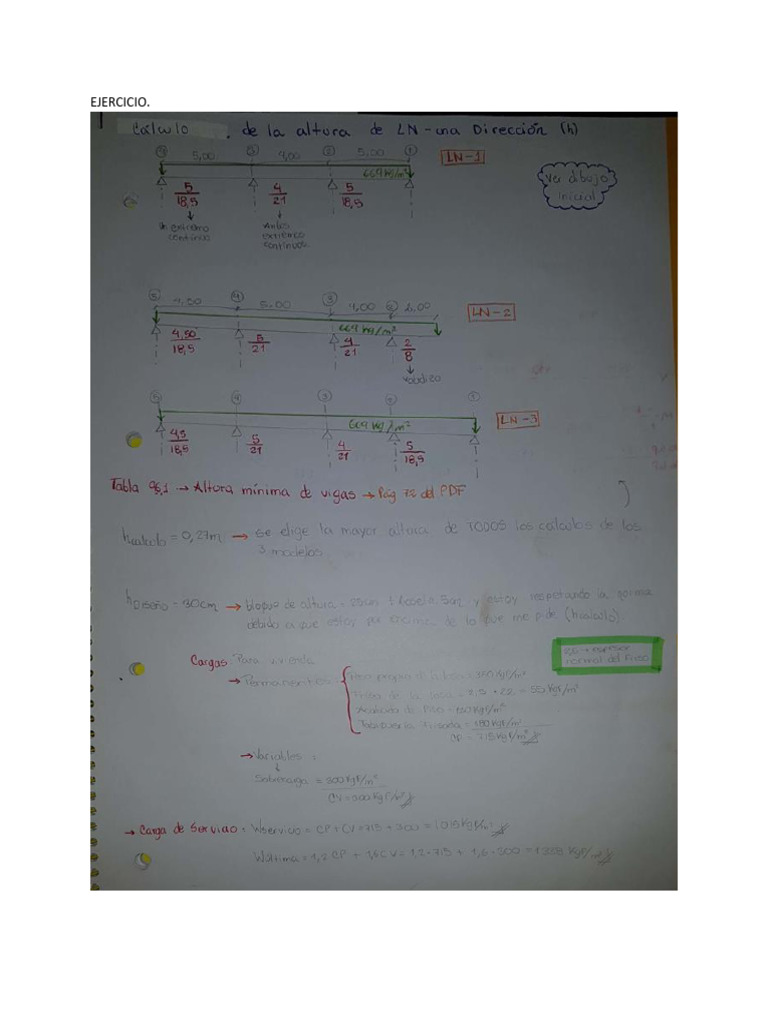 EJERCICIO.
Cálculo de la altura de LN-una Dirección (h)
5,00 4,00 5,00
LN-1
669 kg/m²
5/18,5 4/21 5/18,5
Ver dibujo
inicial
Un extremo
continuo
Ambos
extremos
continuos
5 4 3 2
4,50 5,00 4,00 2,00
LN-2
669 kg/m²
4,50/18,5 5/21 4/21 2/8
voladizo
5 4 3 2 1
LN-3
669 kg/m²
4,5/18,5 5/21 4/21 5/18,5
Tabla 9.5.1 → Altura mínima de vigas → Pág 72 del PDF
hcalculo = 0,27m → Se elige la mayor altura de TODOS los cálculos de los
3 modelos.
hDiseño = 30cm → bloque de altura = 25cm + loseta 5cm y estoy respetando la norma
debido a que estoy por encima de lo que me pide (hcalculo).
Cargas: Para vivienda
normal del Friso
→ Permanentes
Peso propio de la losa = Kgf/m²
Friso de la losa = 2,5 * 22 = 55 Kgf/m²
Acabado de Piso = Kgf/m²
Tabiquería Frisada = 180 Kgf/m²
CP = 715 Kgf/m²
→ Variables:
Sobrecarga = 300 Kgf/m²
CV = 300 Kgf/m²
→ Carga de Servicio: Wservicio = CP + CV = 715 + 300 = 1015 Kgf/m²
Wúltima = 1,2 CP + 1,6 CV = 1,2 * 715 + 1,6 * 300 = 1338 Kgf/m²